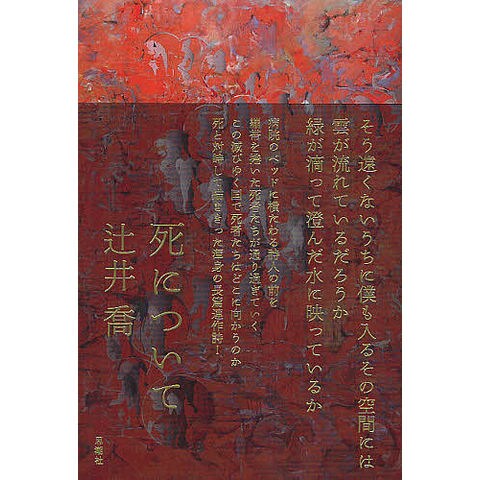 そう遠くないうちに僕も入るその空間には
雲が流れているだろうか
緑が滴って澄んだ水に映っているか
病院のベッドに横たわる詩人の前を
繃帯を捲いた死者たちが通り過ぎていく
この滅びゆく国で死者たちはどこに向かうのか
死と対峙して書ききった渾身の長篇連作詩！
死について
辻井 喬
思潮社